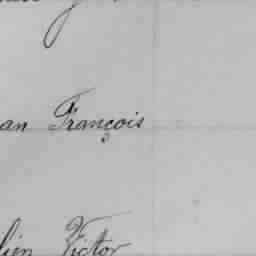 an François
lien Victor